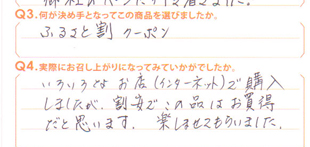 Q3.何が決め手となってこの商品を選びましたか。
ふるさと割 クーポン
Q4.実際にお召し上がりになってみていかがでしたか。
いろいろなお店(インターネット)で購入
しましたが、割安でこの品はお買得
だと思います。楽しませてもらいました。